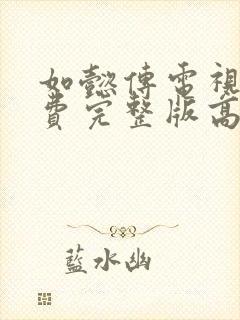 如懿傳電視
費完整版高
藍水幽